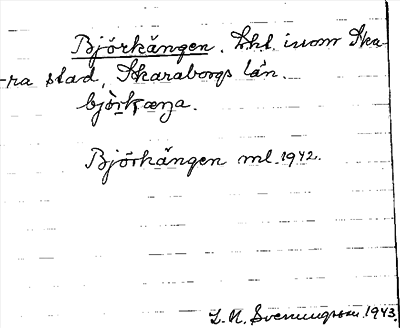 Björkängen. Lht. inom Ska-
-ra stad, Skaraborgs län.
björkæŋa.
Björkängen ml. 1942.
L. N. Svenungsson 1943.